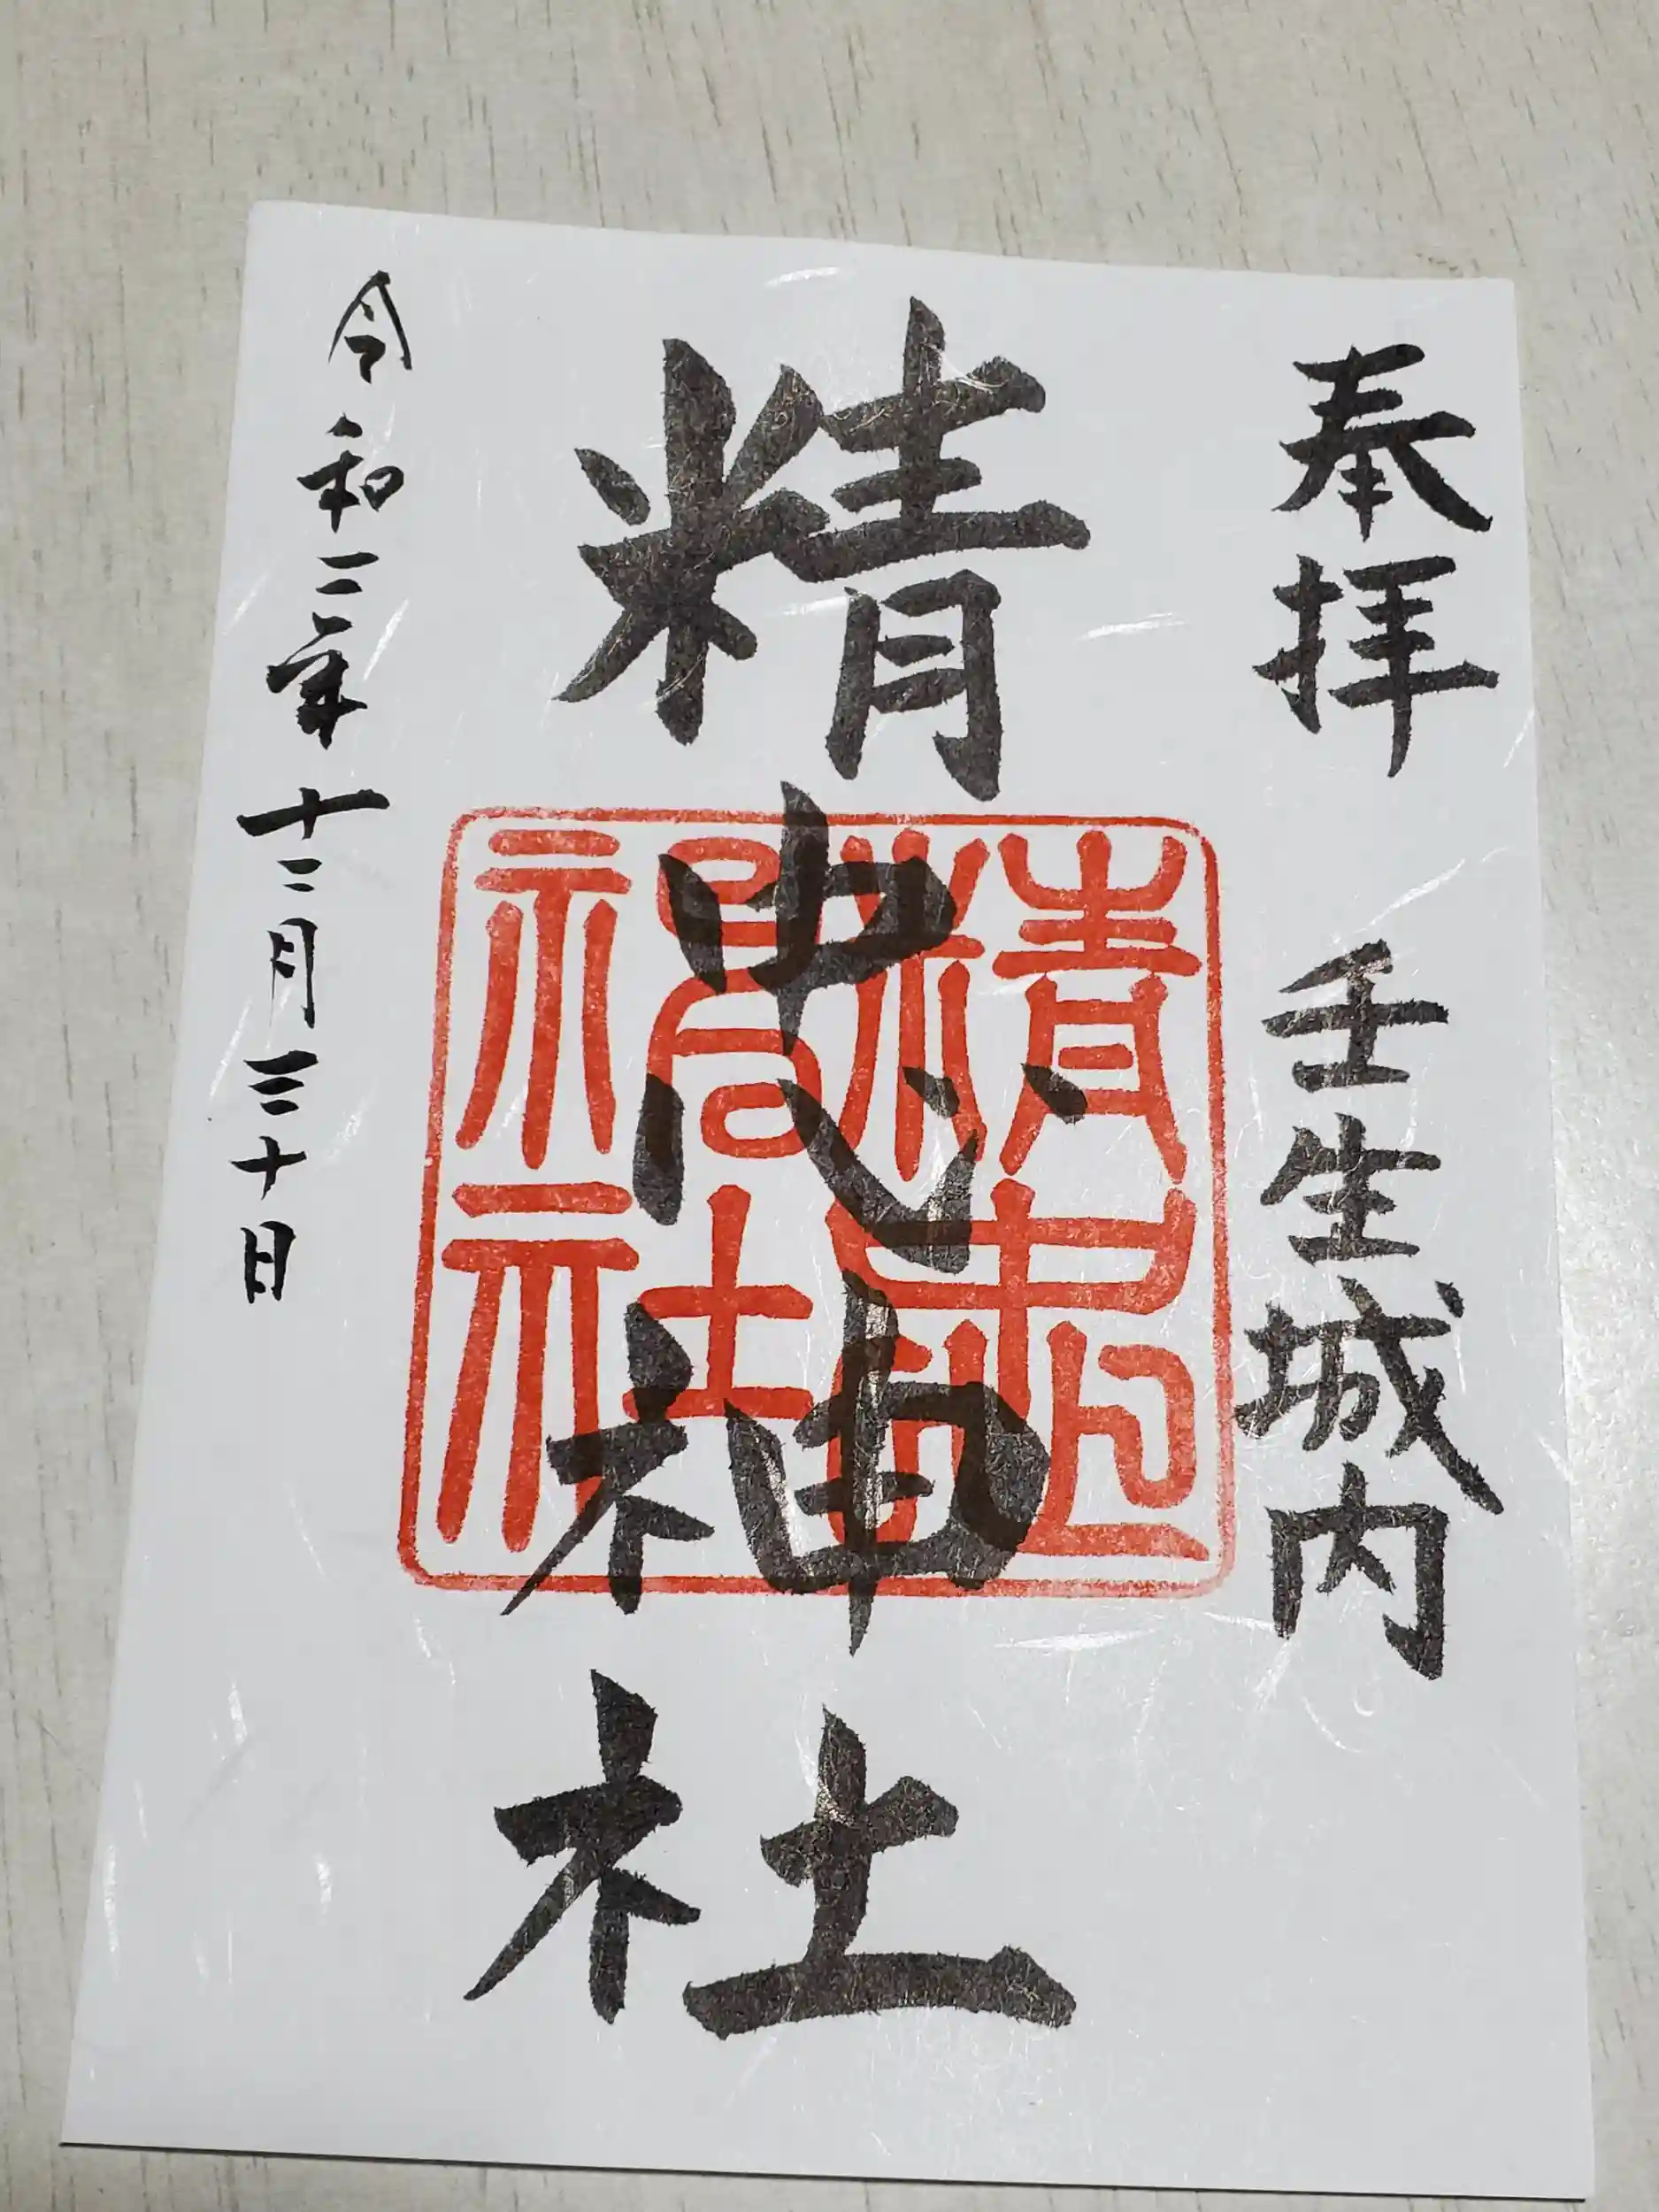 奉拝 壬生城内
精忠神社
精忠神社
令和二年十二月三十日